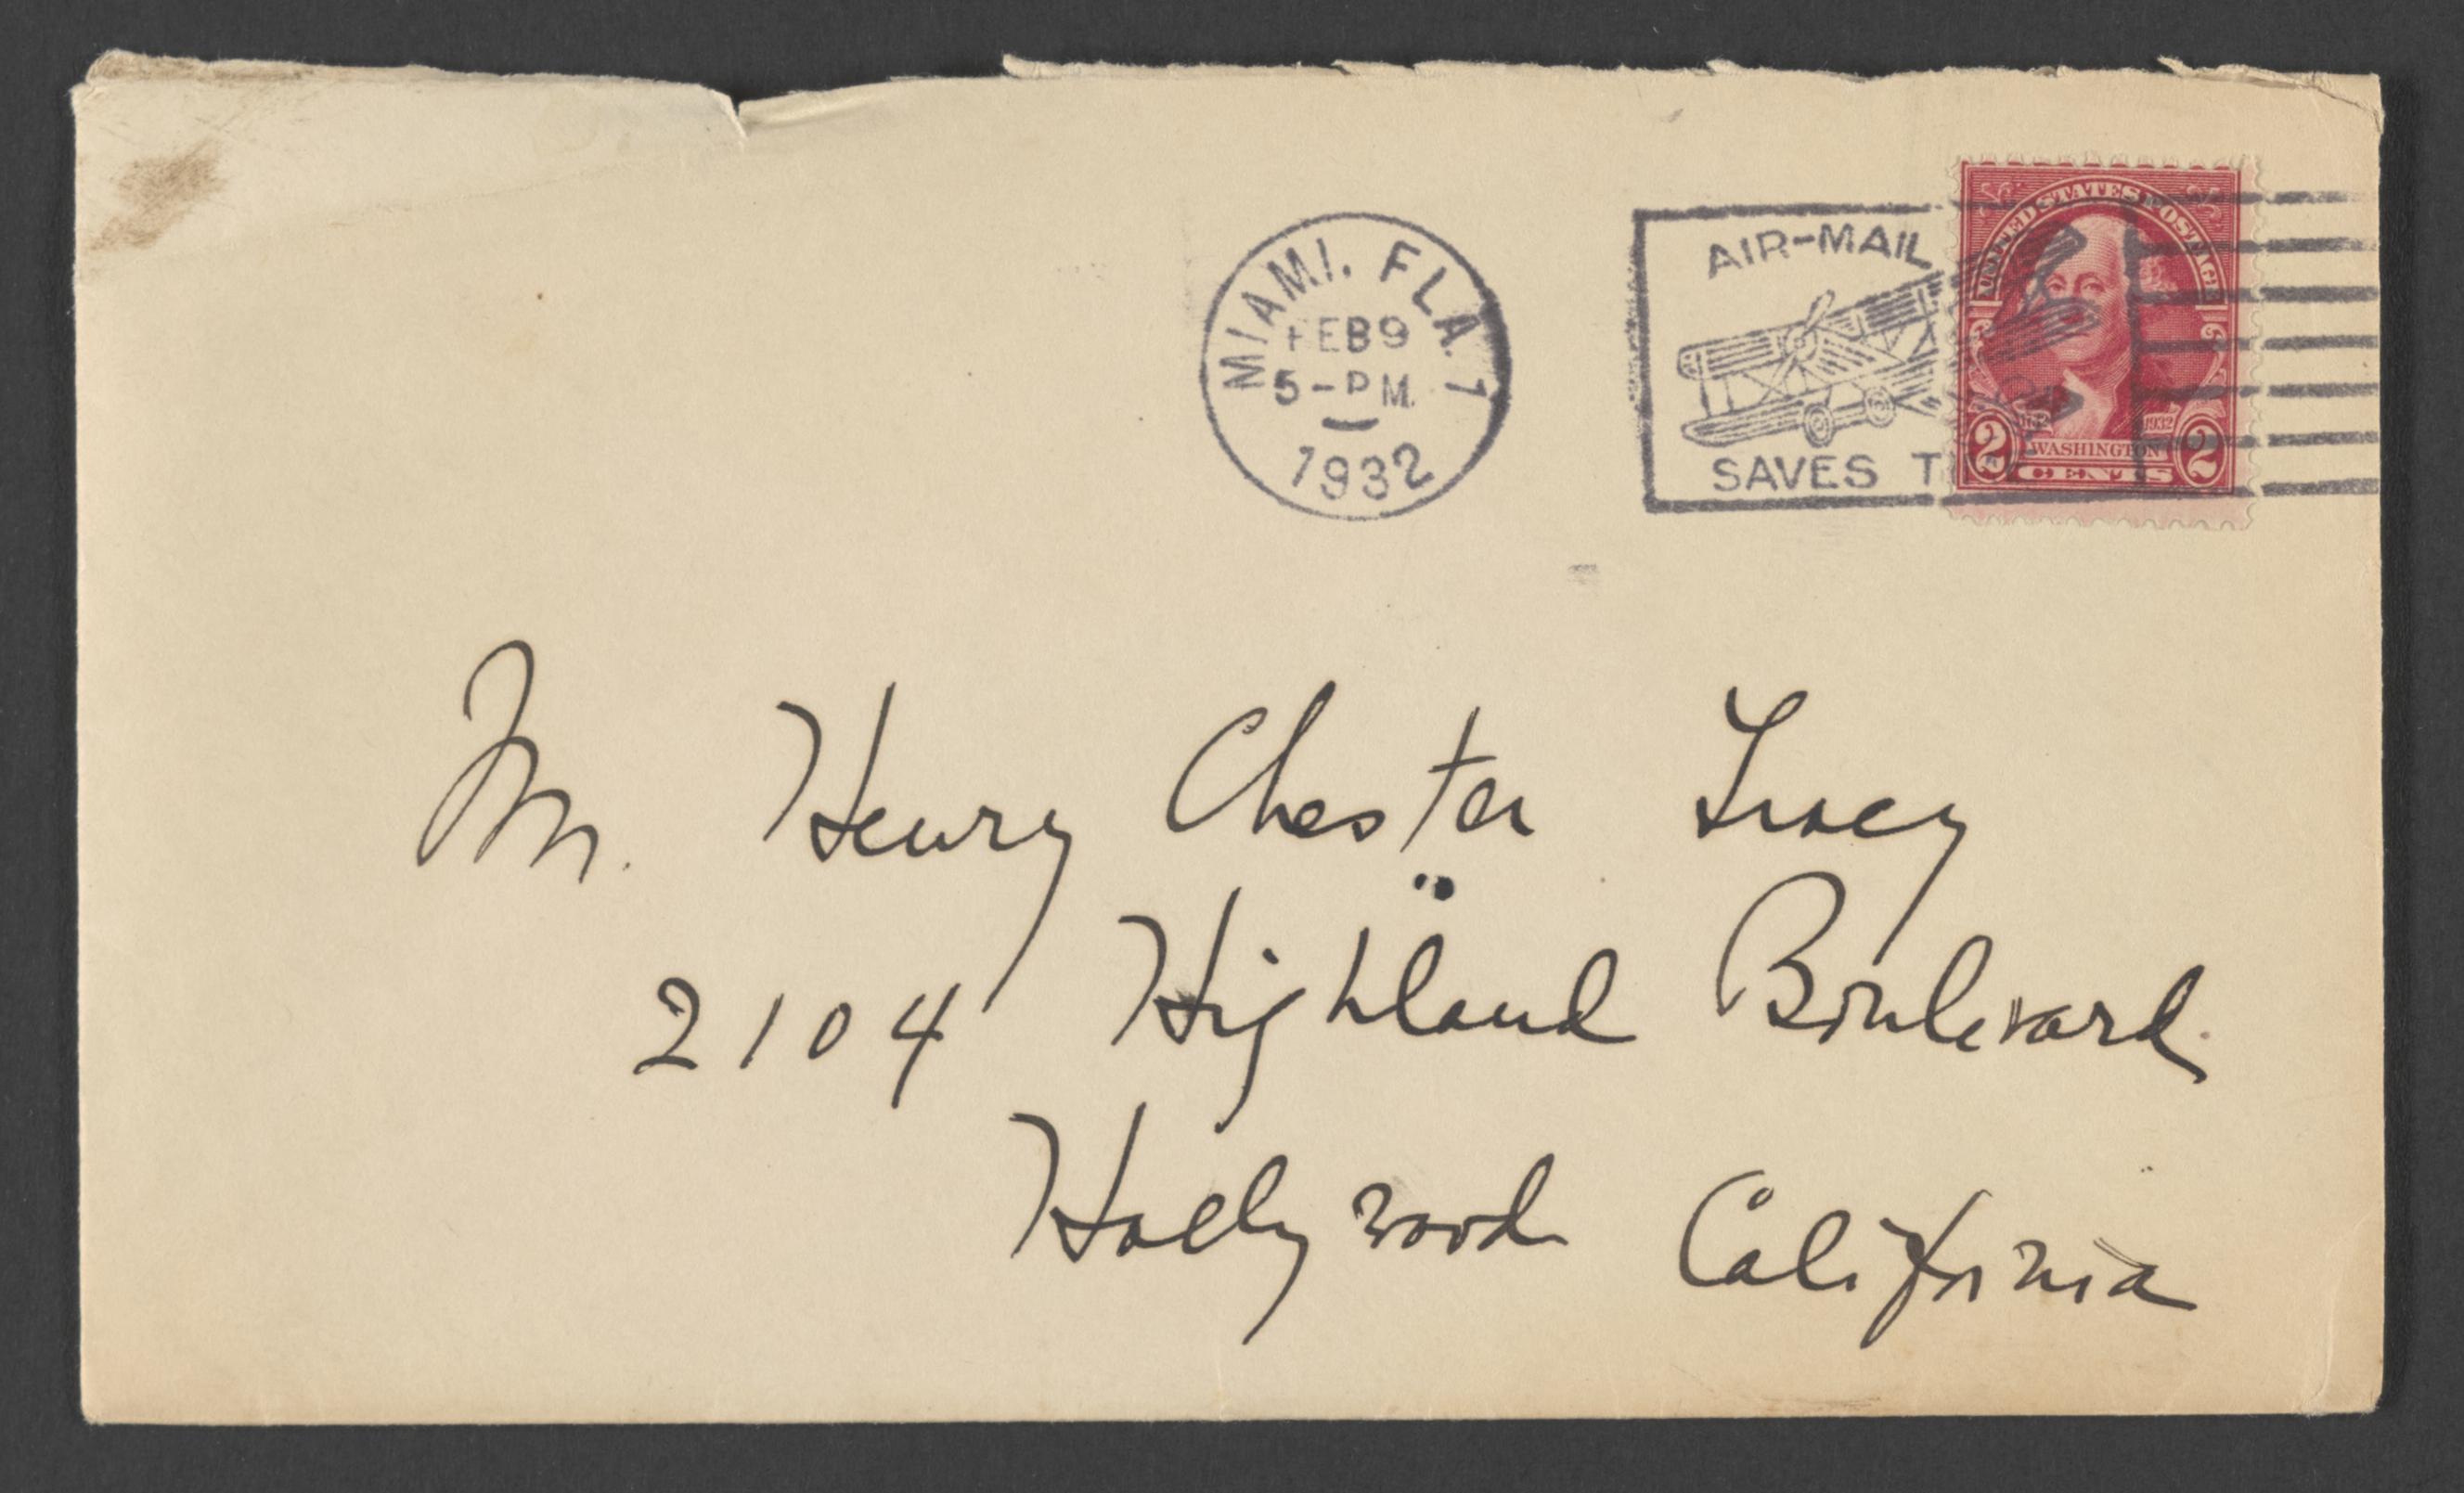 MIAMI. FLA. 1
FEB 9
5-PM.
1932
AIR-MAIL
SAVES
UNITED STATES POSTAGE
1932
WASHINGTON
2 CENTS 2
Mr. Henry Chester Tracy
2104 Highland Boulevard
Hollywood California